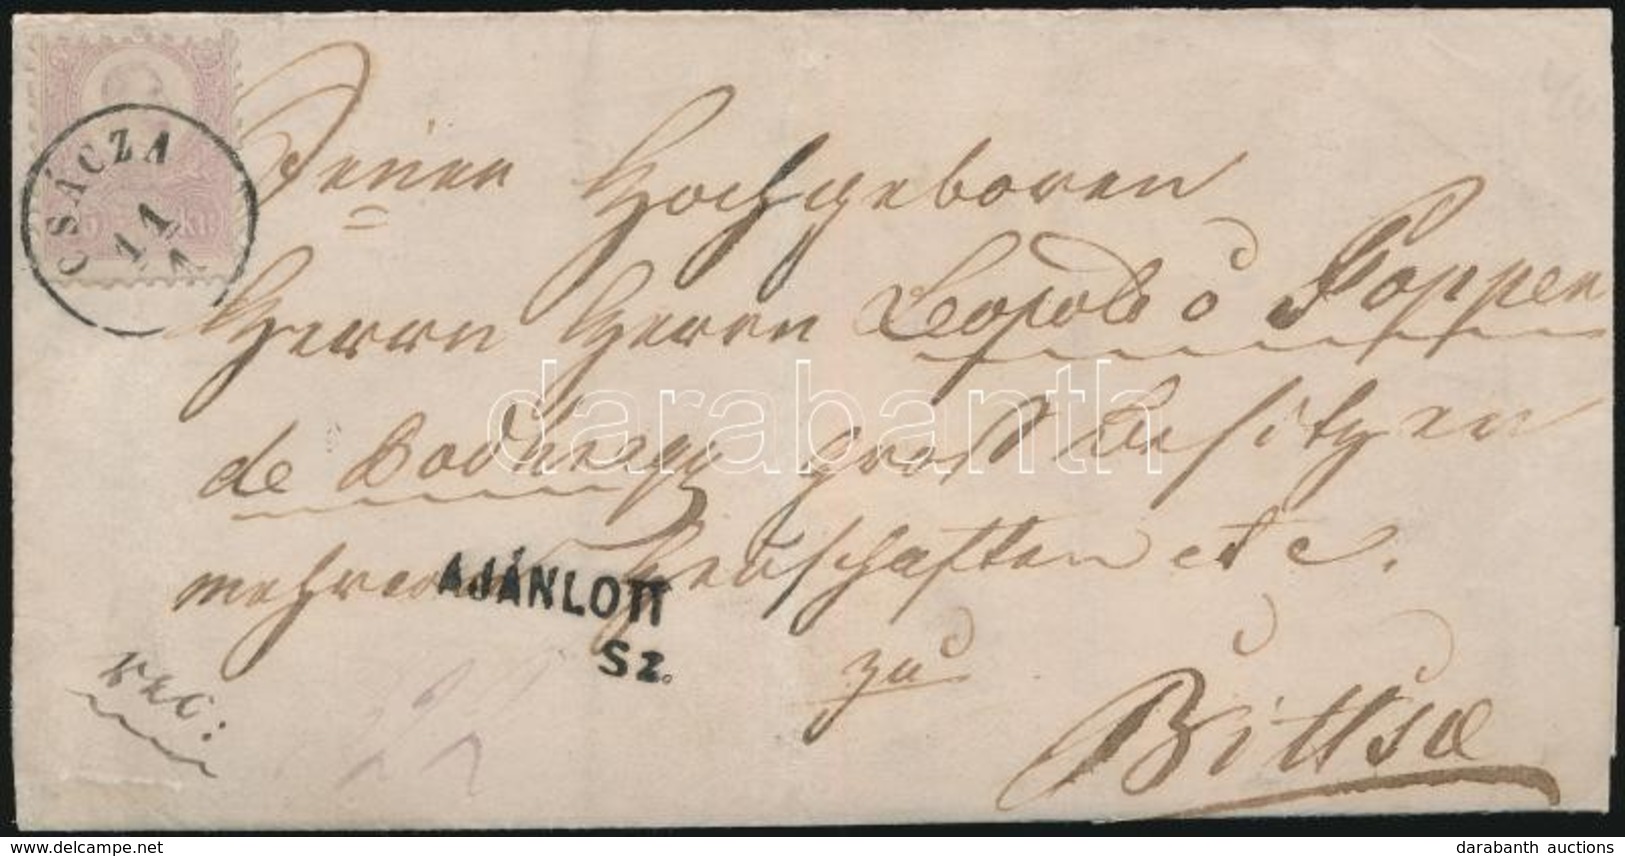 CSÁCZA
11
1
Seiner Hochgeboren
Herrn Herrn Leopold v Poppen
de Bodneregg groß Besitzer
mehrerer Herschaften etc.
AJÁNLOTT
Sz.
rec:
zu
Bittse
darabanth
www.delcampe.net
darabanth auctions